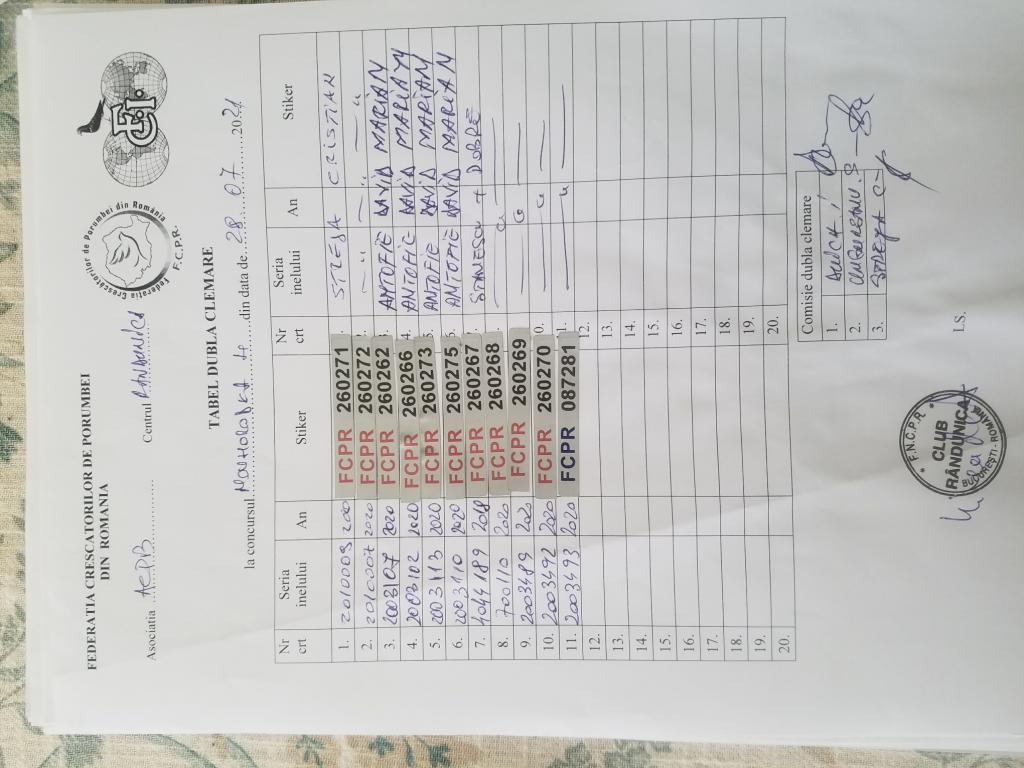 FEDERATIA CRESCATORILOR DE PORUMBEI
DIN ROMANIA
Federatia Crescătorilor de Porumbei din România
F.C.P.R.
FCI
Asociatia ACPB Centrul RANDUNICA
TABEL DUBLA CLEMARE
la concursul din data de 28 07 2021
Nr crt Seria inelului An Stiker Nr crt Seria inelului An Stiker
1. 2010009 FCPR 260271 STREJA CRISTIAN
2. 2010007 2020 FCPR 260272 — " — " — "
3. 2003107 2020 FCPR 260262 ANTOFIE DAVID MARIAN
4. 2003102 2020 FCPR 260266 4. ANTOFIE DAVID MARIAN
5. 2003113 2020 FCPR 260273 5. ANTOFIE DAVID MARIAN
6. 2003110 2020 FCPR 260275 5. ANTOFIE DAVID MARIAN
7. 4044189 2018 FCPR 260267 STANESCU + DOBRE
8. 700110 2020 FCPR 260268 — " —
9. 2003489 202 FCPR 260269 — " —
10. 2003492 2020 FCPR 260270 0. — " —
11. 2003493 2020 FCPR 087281 1. — " —
12. 12.
13. 13.
14. 14.
15. 15.
16. 16.
17. 17.
18. 18.
19. 19.
20. 20.
Comisie dubla clemare
1.
2.
3. STREJA C
L.S.
F.N.C.P.R.
CLUB
RÂNDUNICA
BUCUREȘTI - ROMANIA